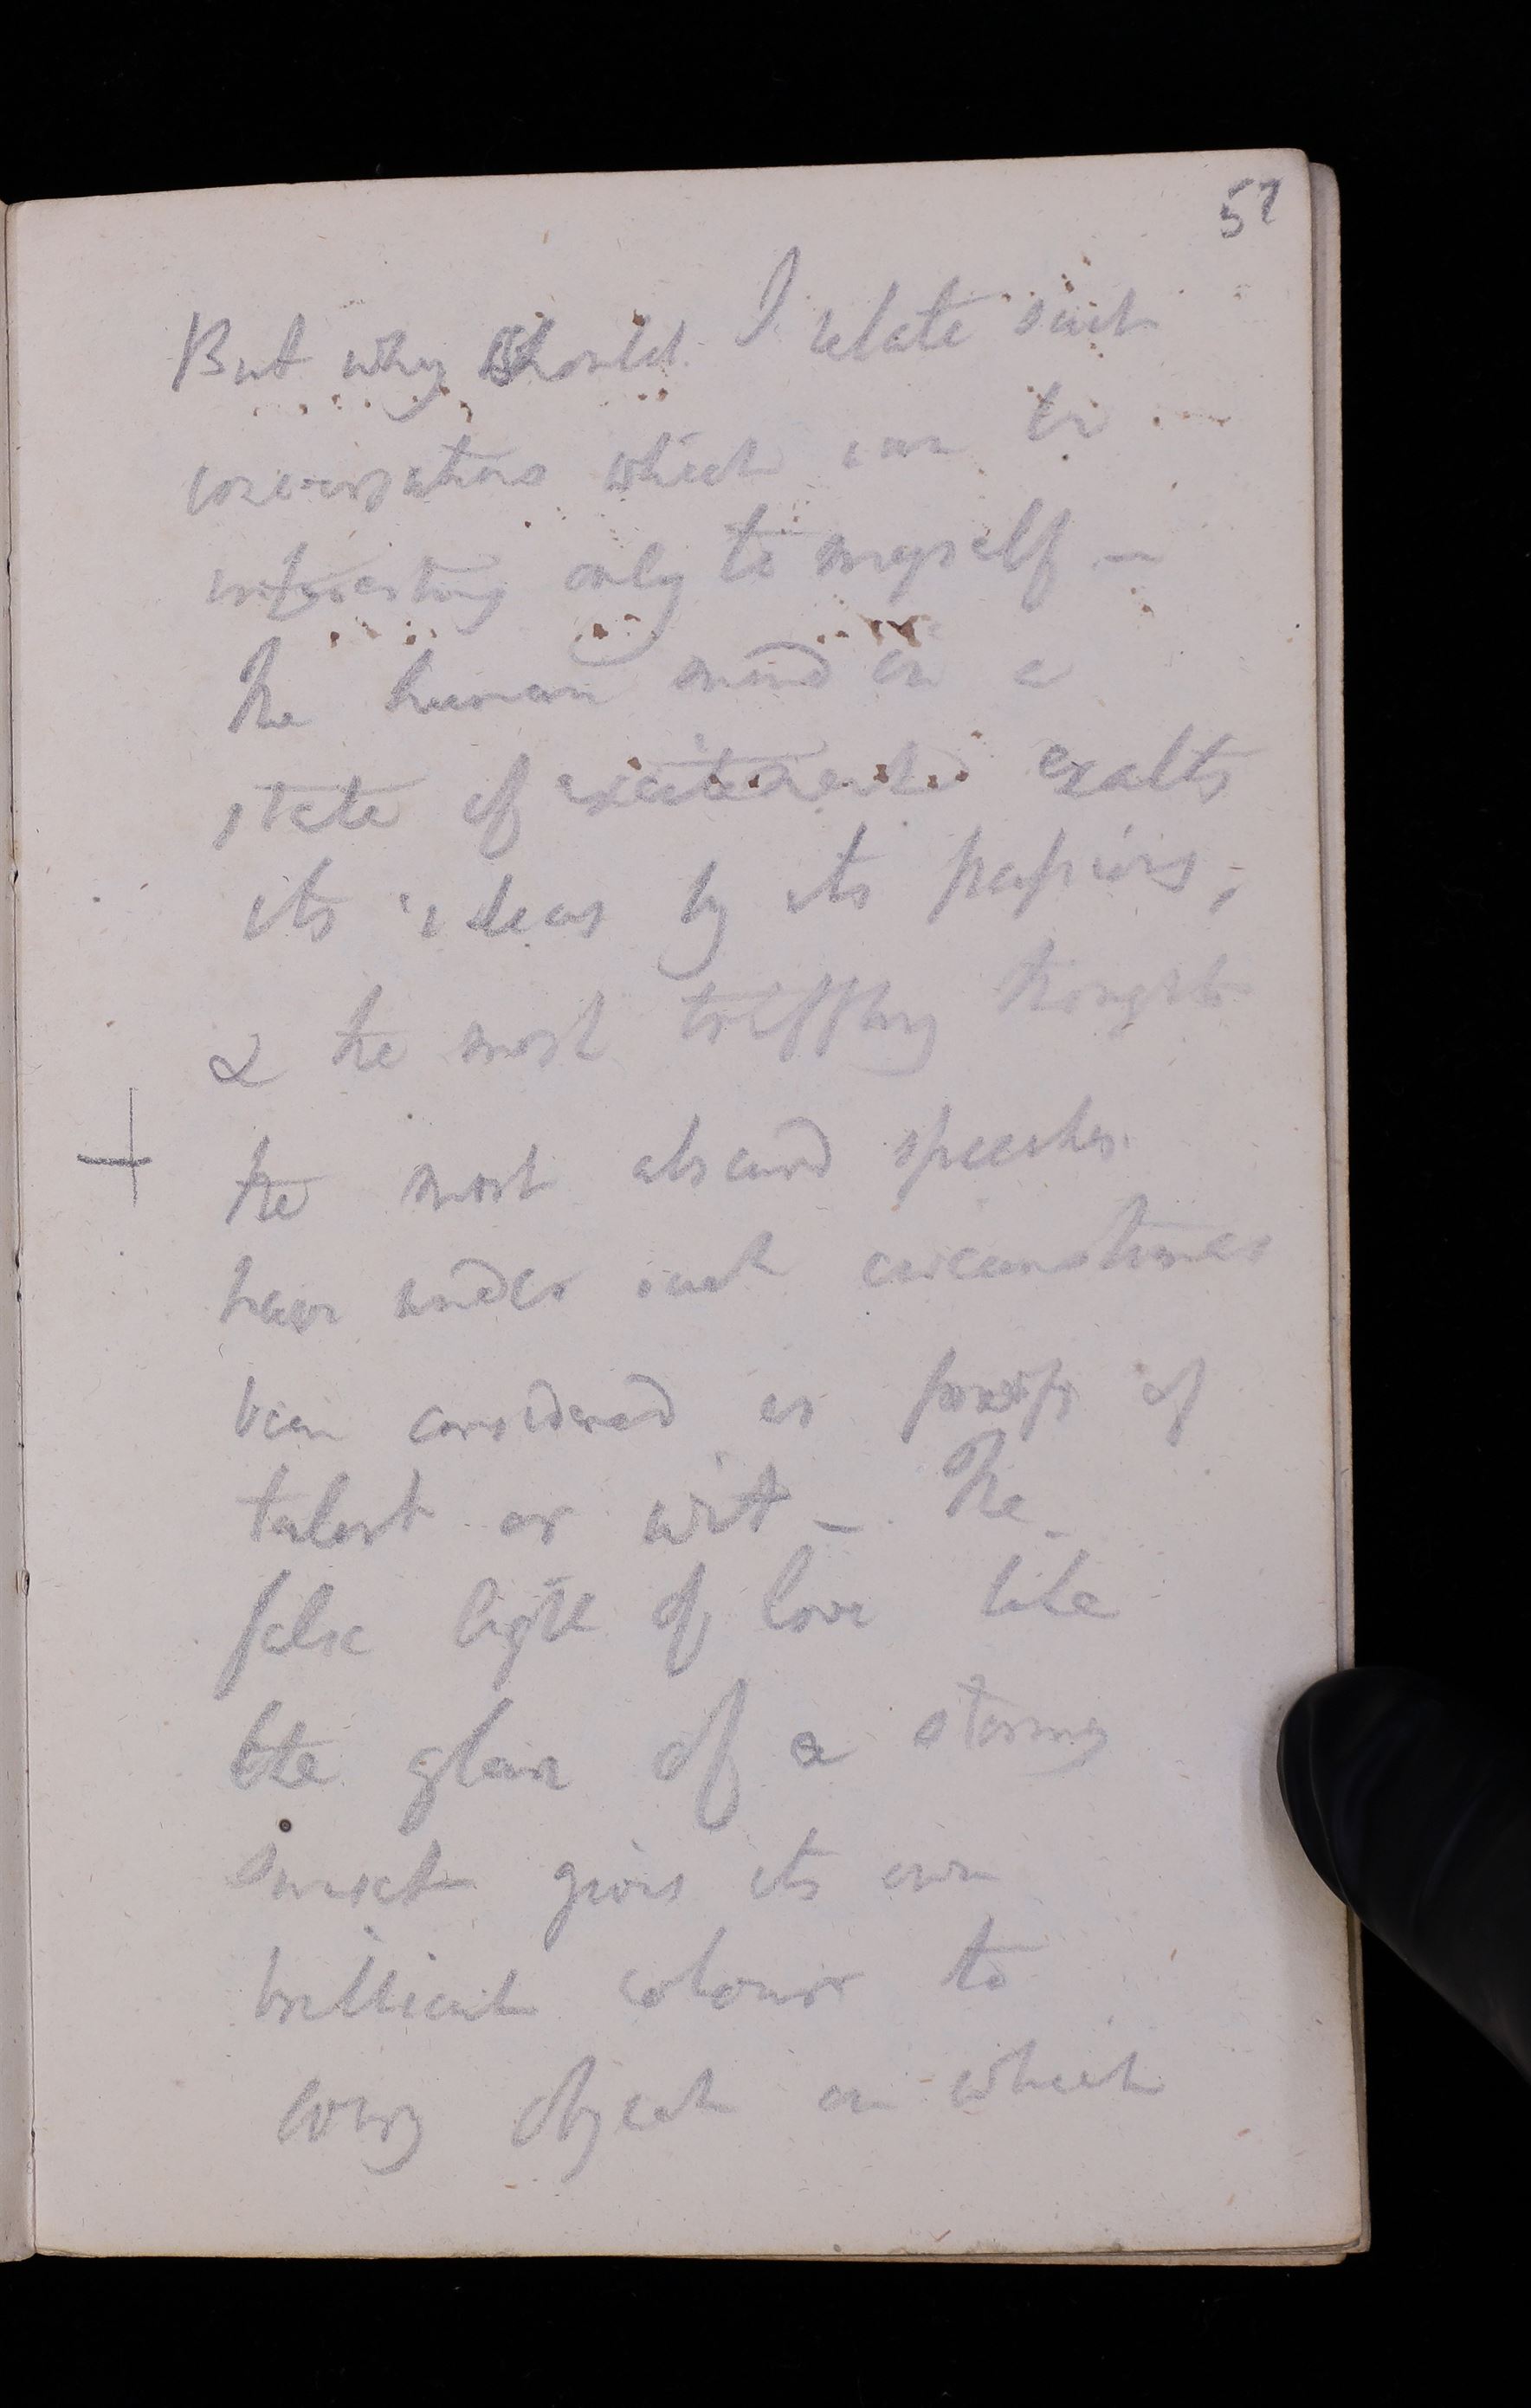 57
But why should I relate such
conversations which can be
interesting only to myself –
The human mind in a
state of excitement exalts
its ideas by its passions,
& the most triffling thoughts
the most absurd speeches
have under such circumstances
been considered as proofs of
talent or wit – The
false light of love like
the glare of a stormy
sunset gives its own
brilliant colours to
every object on which